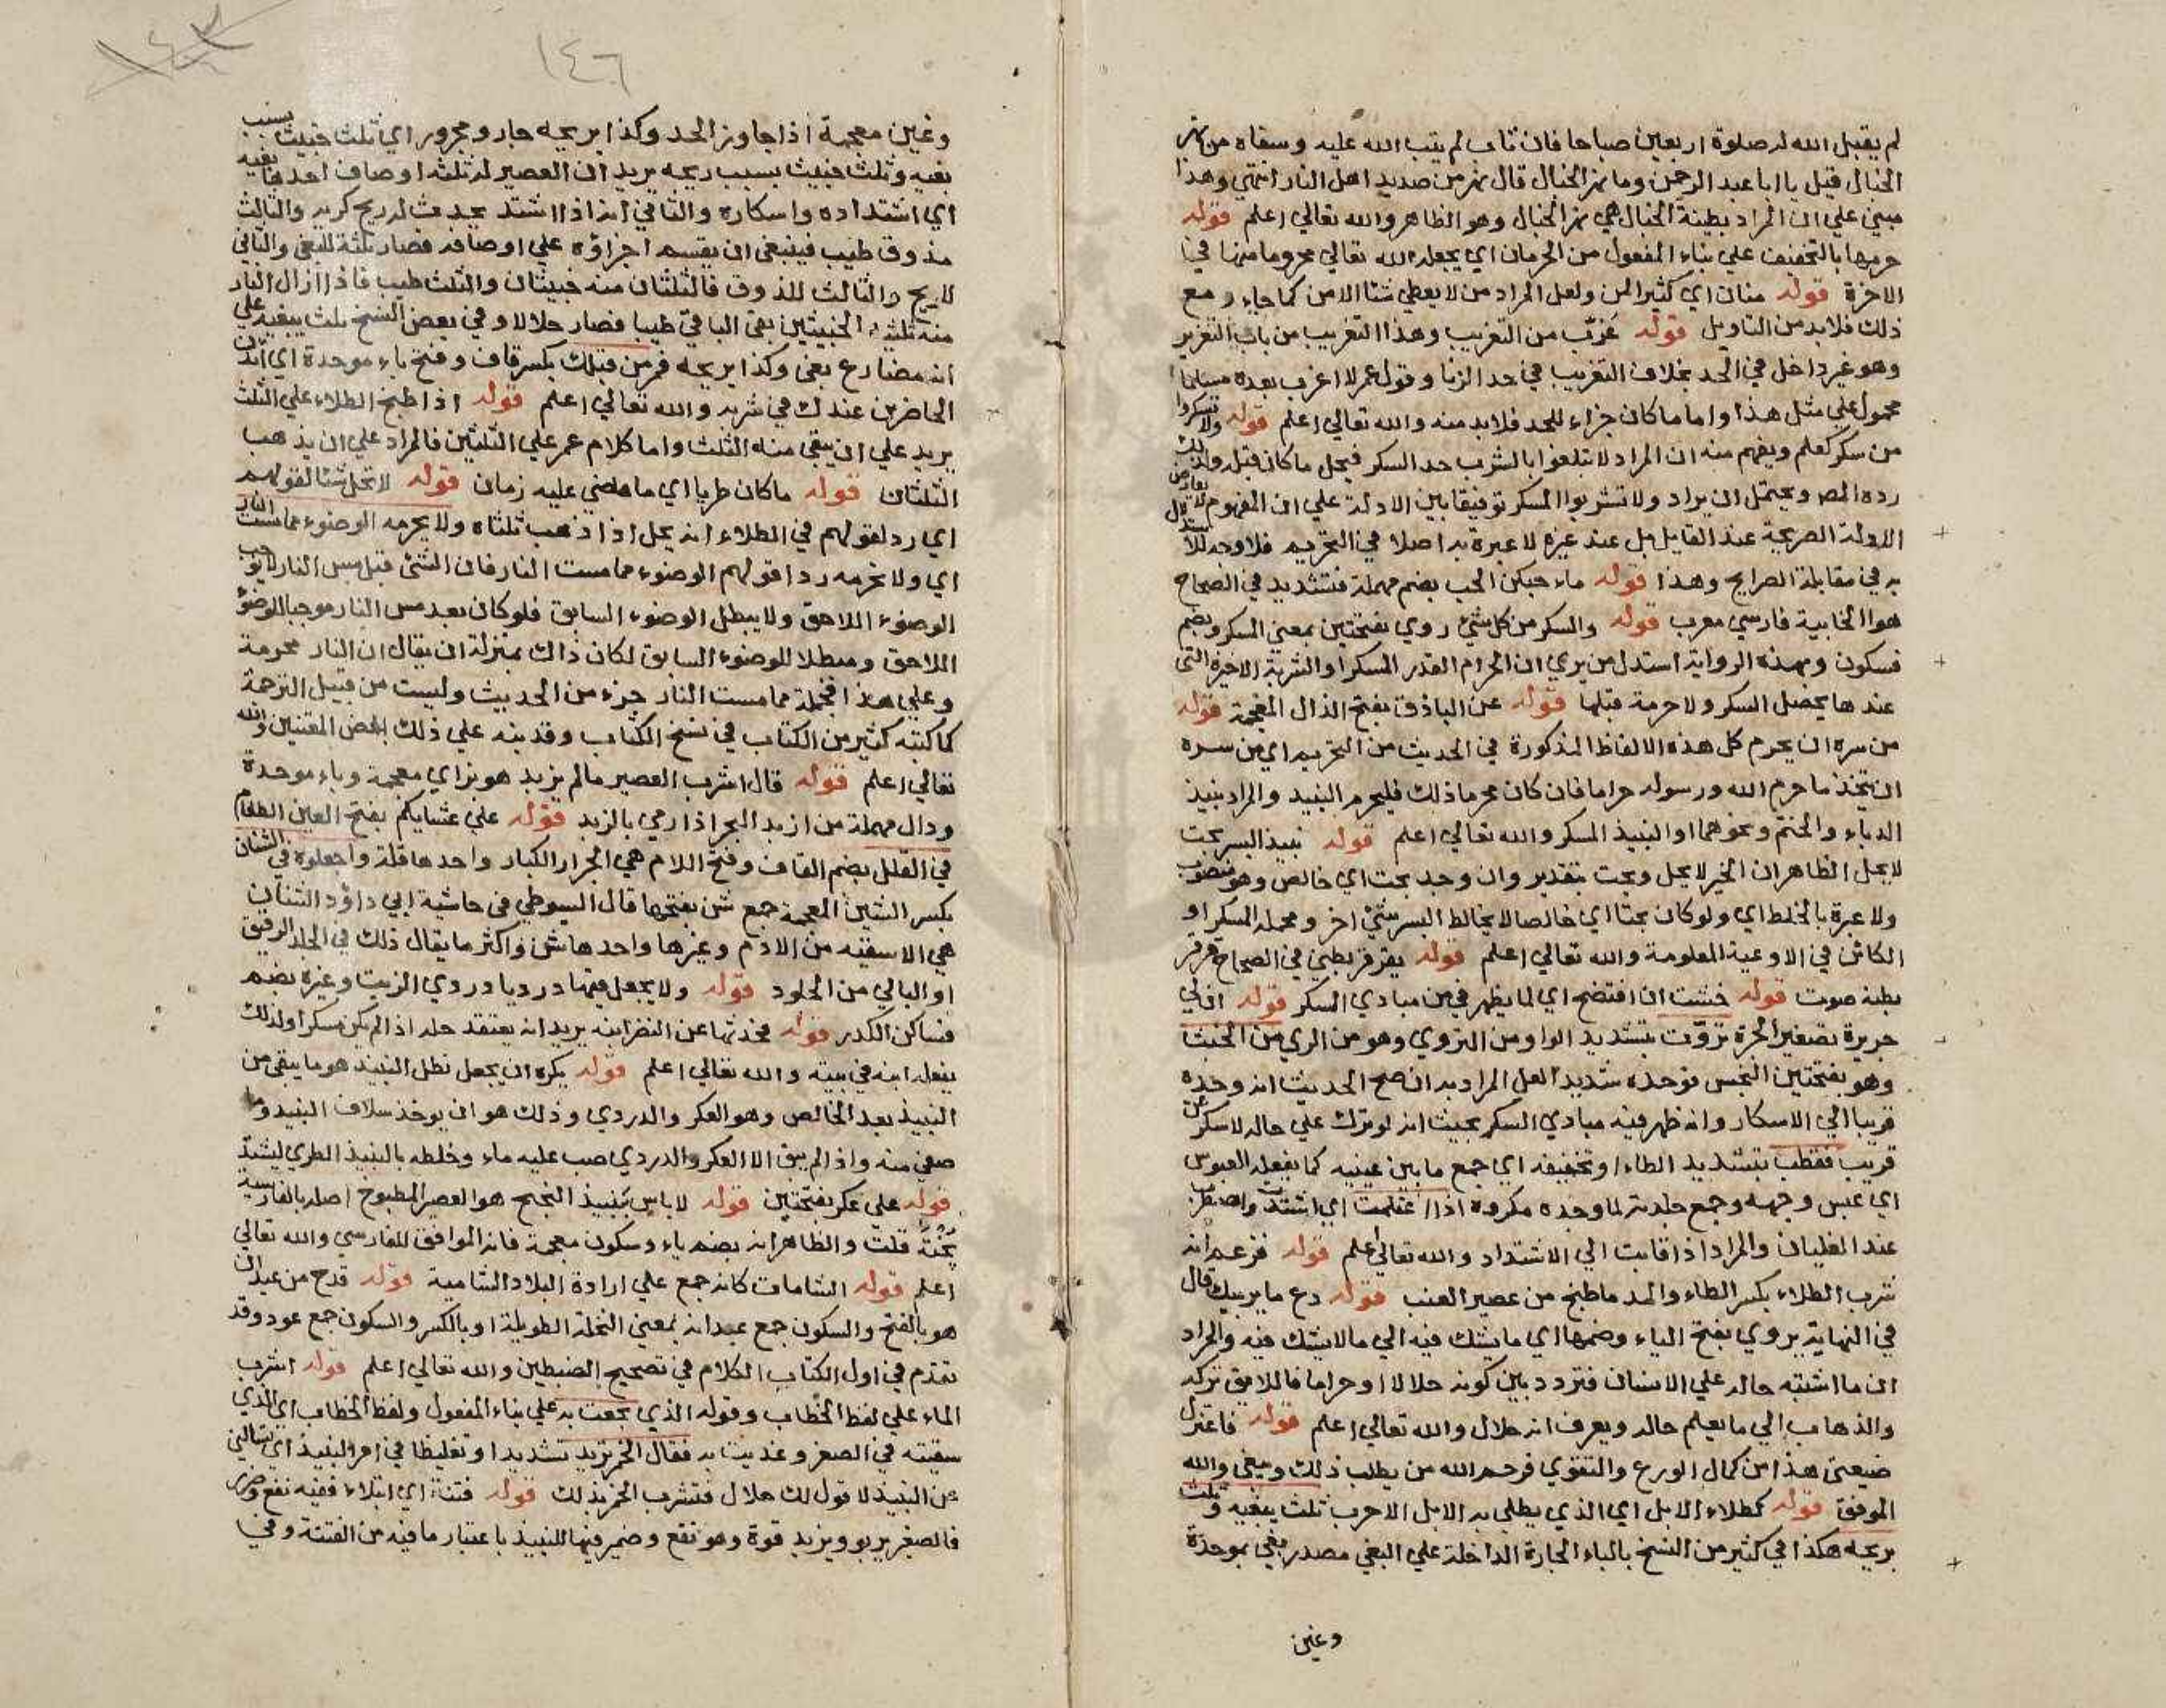 لم يقبل الله له صلوة اربعين صباحا فان تاب لم يتب الله عليه وسقاه من نهر
الخبال قيل يا ابا عبد الرحمن وما نهر الخبال قال نهر من صديد اهل النار انتهي وهذا
مبني علي ان المراد بطينة الخبال هي نهر الخبال وهو الظاهر والله تعالي اعلم قوله
حرمها بالتخفيف علي بناء المفعول من الحرمان اي يجعله الله تعالي محروما منها في
الاخرة قوله منان اي كثير المن ولعل المراد من لا يعطي شئا الا من كما جاء ومع
ذلك فلا بد من التاويل قوله غرّب من التغريب وهذا التغريب من باب التعزير
وهو غير داخل في الحد بخلاف التغريب في حد الزنا وقول عمر لا اغرب بعده مسلما
محمول علي مثل هذا واما ما كان جزاء للحد فلا بد منه والله تعالي اعلم قوله ولا تسكروا
من سكر كعلم ويفهم منه ان المراد لا تبلغوا بالشرب حد السكر فيحل ما كان قبله ولذلك
رده المص ويحتمل ان يراد ولا تشربوا المسكر توفيقا بين الادلة علي ان المفهوم لا يعارض
الادلة الصريحة عند القايل بل عند غيره لا عبرة به اصلا في التحريم فلا وجه للاستدلال
به في مقابلة الصرايح وهذا قوله ماء حبكن الحب بضم مهملة فتشديد في الصحاح
هو الخابية فارسي معرب قوله والسكر من كل شئ روي بفتحتين بمعني المسكر وبضم
فسكون وبهذه الرواية استدل من يري ان الحرام القدر المسكر او الشربة الاخيرة التي
عندها يحصل السكر ولا حرمة قبلها قوله عن الباذق بفتح الذال المعجمة قوله
من سره ان يحرم كل هذه الالفاظ المذكورة في الحديث من التحريم اي من سره
ان يتخذ ما حرم الله ورسوله حراما فان كان محرما ذلك فليحرم النبيذ والمراد نبيذ
الدباء والحنتم ونحوهما او النبيذ المسكر والله تعالي اعلم قوله نبيذ البسر بحت
لا يحل الظاهر ان الخبر لا يحل وبحت بتقدير وان وجد بحت اي خالص وهو منصوب
ولا عبرة بالخلط اي ولو كان بحتا اي خالصا لا يخالط البسر شئ اخر ومحمله المسكر او
الكائن في الاوعية المعلومة والله تعالي اعلم قوله يقرقر بطني في الصحاح قرقر
بطنه صوت قوله خشت ان افتضح اي لما يظهر في من مبادي السكر قوله ان لي
جريرة تصغير الجرة تروّت بتشديد الواو من التروي وهو من الري من الخبث
وهو بفتحتين النجس فوجده شديد العل المراد به ان صح الحديث انه وجده
قريبا الي الاسكار وانه ظهر فيه مبادي السكر بحيث انه لو ترك علي حاله لاسكر عن
قريب فقطب بتشديد الطاء او تخفيفه اي جمع ما بين عينيه كما يفعله العبوس
اي عبس وجهه وجمع جلدته لما وجده مكروه اذا اغتلمت اي اشتدت واضطربت
عند الغليان والمراد اذا قابت الي الاشتداد والله تعالي اعلم قوله فزعم انه
نشرب الطلاء بكسر الطاء والمد ما طبخ من عصير العنب قوله دع ما يريبك قال
في النهاية يروي بفتح الياء وضمها اي ما يشك فيه الي ما لا يشك فيه والمراد
ان ما اشتبه حاله علي الانسان فتردد بين كونه حلالا او حراما فاللايق تركه
والذهاب الي ما يعلم حاله ويعرف انه حلال والله تعالي اعلم قوله فاعتزل
ضيعتي هذا من كمال الورع والتقوي فرحم الله من يطلب ذلك ويبغي والله
الموفق قوله كطلاء الابل اي الذي يطلي به الابل الاجرب ثلث ببغيه وثلث
بريحه هكذا في كثير من النسخ بالباء الجارة الداخلة علي البغي مصدر بغي بموحدة
وغين
١٤٦
وغين معجمة اذا جاوز الحد وكذا بريحه جار ومجرور اي ثلث خبيث بسبب
بغيه وثلث خبيث بسبب ريحه يريد ان العصير له ثلثة اوصاف احدها بغيه
اي اشتداده واسكاره والثاني انه اذا اشتد يحدث له ريح كريه والثالث
مذوق طيب فينبغي ان يقسم اجزاؤه علي اوصافه فصار ثلثه للبغي والثاني
للريح والثالث للذوق فالثلثان منه خبيثان والثلث طيب فاذا ازال النار
منه ثلثيه الخبيثين بقي الباقي طيبا فصار حلالا وفي بعض النسخ ثلث يبغيه علي
انه مضارع بغي وكذا بريحه فمر من قبلك بكسر قاف وفتح باء موحدة اي ائذن
الحاضرين عندك في شربه والله تعالي اعلم قوله اذا طبخ الطلاء علي الثلث
يريد علي ان يبقي منه الثلث واما كلام عمر علي الثلثين فالمراد علي ان يذهب
الثلثان قوله ما كان طريا اي ما مضي عليه زمان قوله لا تحل شئا لقولهم
اي رد لقولهم في الطلاء انه يحل اذا ذهب ثلثاه ولا يحرمه الوضوء مما مست النار
اي ولا تحرمه رد اقولهم الوضوء مما مست النار فان الشئ قبل مس النار لا يوجب
الوضوء اللاحق ولا يبطل الوضوء السابق فلو كان بعد مس النار موجبا للوضوء
اللاحق ومبطلا للوضوء السابق لكان ذاك بمنزلة ان يقال ان النار محرمة
وعلي هذا فجملة مما مست النار جزء من الحديث وليست من قبيل الترجمة
كما كتبه كثير من الكتاب في نسخ الكتاب وقد نبه علي ذلك بعض المتقنين والله
تعالي اعلم قوله قال اشرب العصير ما لم يزبد هو بزاي معجمة وباء موحدة
ودال مهملة من ازبد البحر اذا رمي بالزبد قوله علي عشايكم بفتح العين الطعام
في القلل بضم القاف وفتح اللام هي الجرار الكبار واحدها قلة واجعلوه في الشنان
بكسر الشين المعجمة جمع شن بفتحها قال السيوطي في حاشية ابي داؤد الشنان
هي الاسقيه من الادم وغيرها واحدها شن واكثر ما يقال ذلك في الجلد الرقيق
او البالي من الجلود قوله ولا يجعل فيها درديا دردي الزيت وغيره بضم
فساكن الكدر قوله مخدتها عن النضر ابنه يريد انه يعتقد حله اذا لم يكن مسكرا ولذلك
يفعله ابنه في بيته والله تعالي اعلم قوله يكره ان يجعل نطل النبيذ هو ما يبقي من
النبيذ بعد الخالص وهو العكر والدردي وذلك هو ان يوخذ سلاف النبيذ وما
صفي منه واذا لم يبق الا العكر والدردي صب عليه ماء وخلطه بالنبيذ الطري ليشتد
قوله علي عكر بفتحتين قوله لا باس بنبيذ البختج هو العصير المطبوخ اصله بالفارسية
پُخْتَه قلت والظاهر انه بضم باء وسكون معجمة فانه الموافق للفارسي والله تعالي
اعلم قوله الشامات كانه جمع علي ارادة البلاد الشامية قوله قدح من عيدان
هو بالفتح والسكون جمع عيدانه بمعني النخلة الطويلة او بالكسر والسكون جمع عود وقد
تقدم في اول الكتاب الكلام في تصحيح الضبطين والله تعالي اعلم قوله اشرب
الماء علي لفظ الخطاب وقوله الذي نجعت به علي بناء المفعول ولفظ الخطاب اي الذي
سقيته في الصغر وغذيت به فقال الخمر تريد تشديدا وتغليظا في امر النبيذ اي تسالني
عن النبيذ لا قول لك حلال فتشرب الخمر بذلك قوله فتنة اي ابتلاء ففيه نفع وضرر
فالصغير يربو ويزيد قوة وهو نفع وضمير فيها للنبيذ باعتبار ما فيه من الفتنة وفي